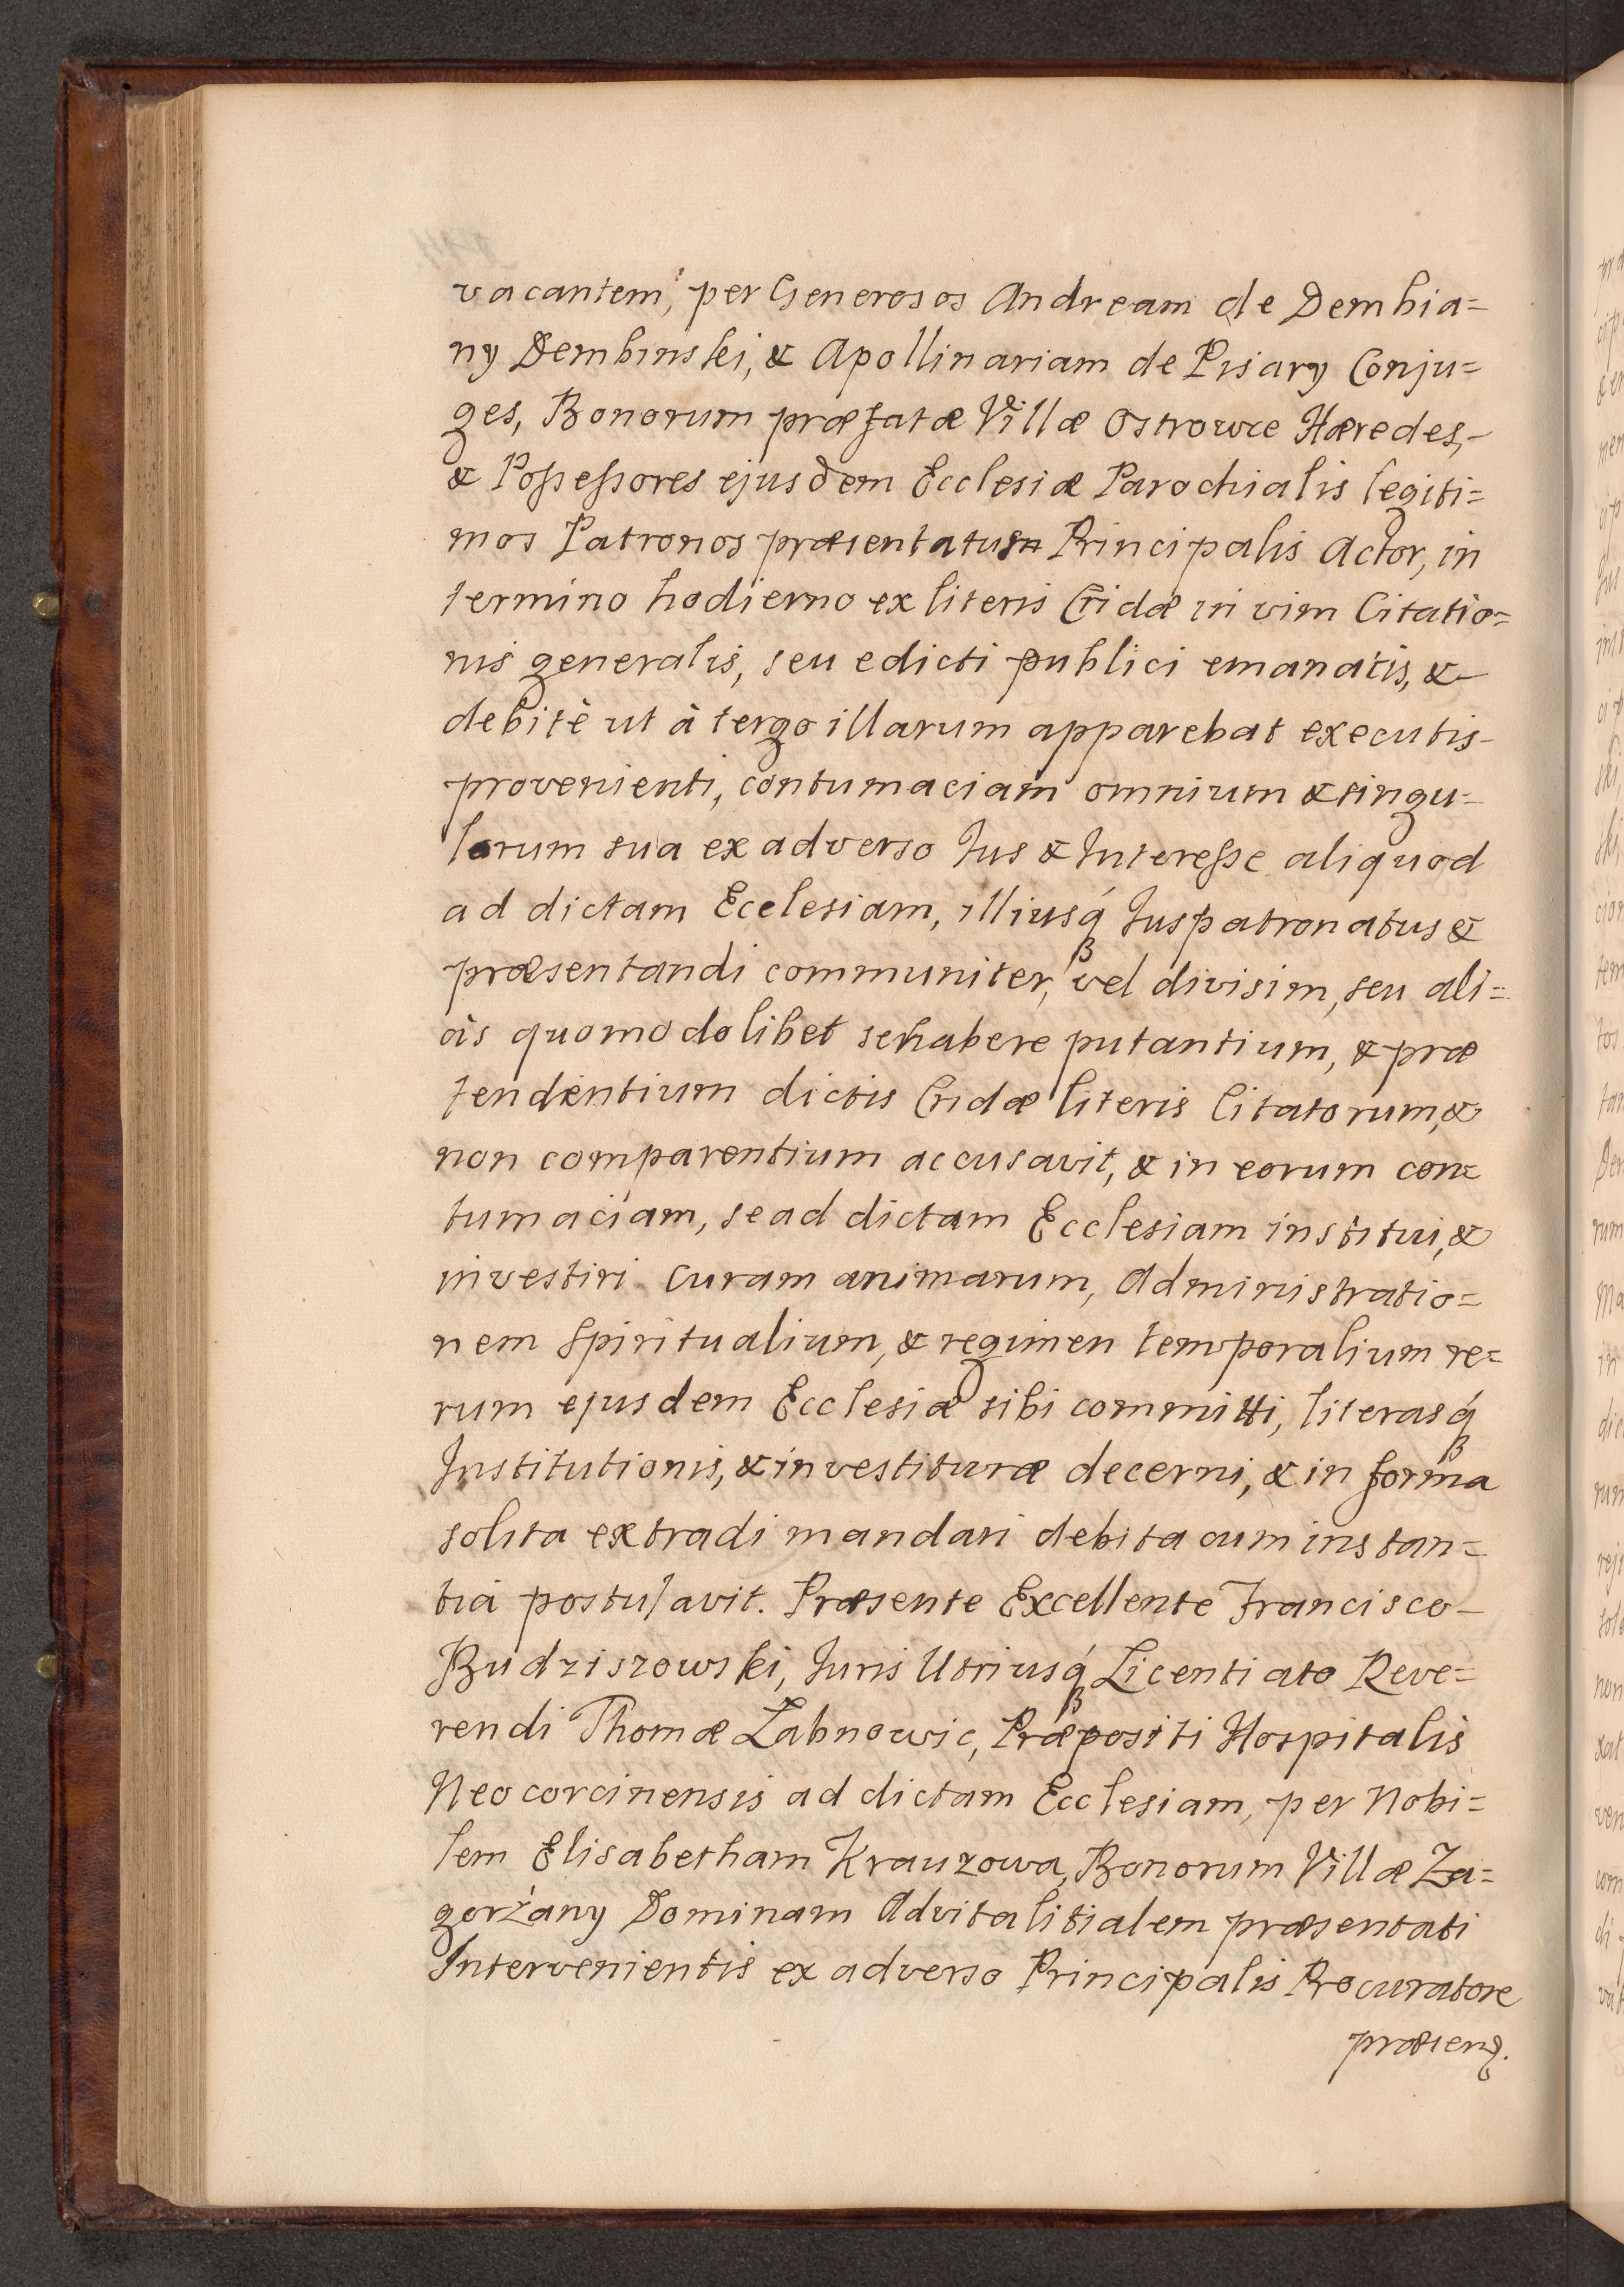 vacantem, per Generosos Andream de Dembia=
ny Dembinski, & Apollinariam de Pisary Conju=
ges, Bonorum præfatæ Villæ Ostrowce Hæredes,
& Poſseſsores ejusdem Ecclesiæ Parochialis legiti=
mos Patronos præsentatus Principalis Actor, in
termino hodierno ex literis Cridæ in vim Citatio=
nis generalis, seu edicti publici emanatis, &
debitè ut à tergo illarum apparebat executis
provenienti, contumaciam omnium & singu=
lorum sua ex adverso Jus & Intereſse aliquod
ad dictam Ecclesiam, illiusq́ꝫ Juspatronatus &
præsentandi communiter, vel divisim, seu ali=
às quomodolibet se habere putantium, & præ
tendentium dictis Cridæ literis Citatorum, &
non comparentium accusavit, & in eorum con=
tumaciam, se ad dictam Ecclesiam institui, &
investiri curam animarum, Administratio=
nem Spiritualium, & regimen temporalium re=
rum ejusdem Ecclesiæ sibi committi, literasq́ꝫ
Institutionis, & investituræ decerni, & in forma
solita extradi mandari debita cum instan=
tiá postulavit. Præsente Excellente Francisco
Budziszowski, Juris Utriusq́ꝫ Licentiato Reve=
rendi Thomæ Łabnowic, Præpositi Hospitalis
Neocorcinensis ad dictam Ecclesiam, per Nobi=
lem Elisabetham Krauzowa, Bonorum Villæ Za=
gorżany Dominam Advitalitialem præsentati
Intervenientis ex adverso Principalis Procuratore